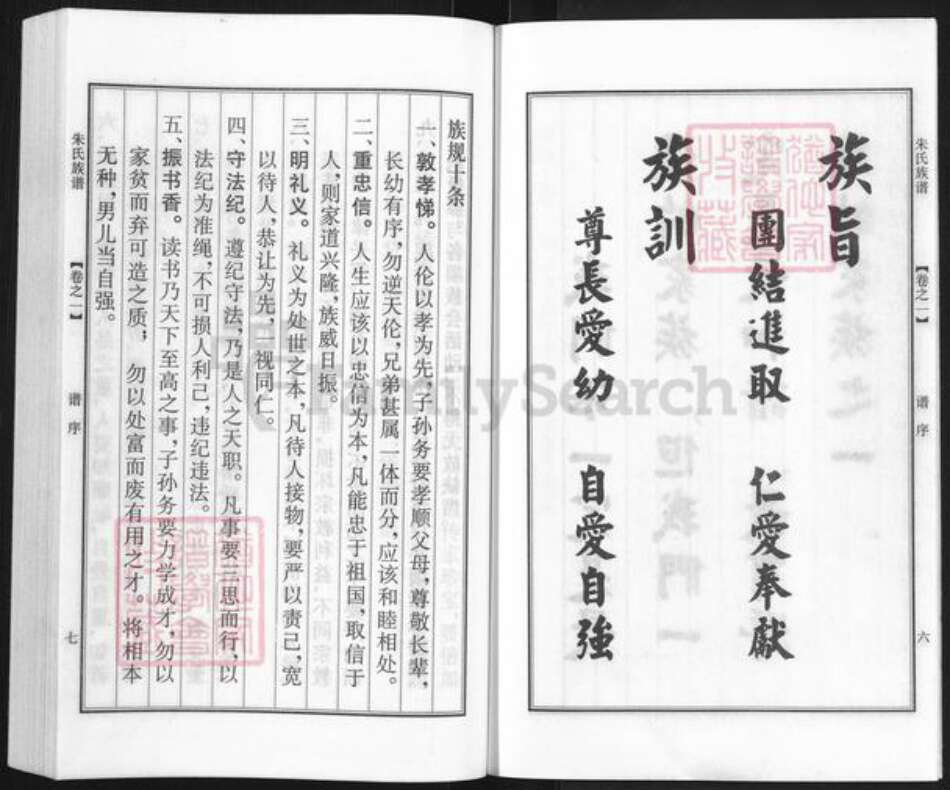 朱氏族谱
【卷之一】
谱序
六
族旨
團結進取 仁愛奉獻
族訓
尊長愛幼 自愛自強
族规十条
一、敦孝悌。人伦以孝为先,子孙务要孝顺父母,尊敬长辈,
长幼有序,勿逆天伦,兄弟甚属一体而分,应该和睦相处。
二、重忠信。人生应该以忠信为本,凡能忠于祖国,取信于
人,则家道兴隆,族威日振。
三、明礼义。礼义为处世之本,凡待人接物,要严以责己,宽
以待人,恭让为先,一视同仁。
四、守法纪。遵纪守法,乃是人之天职。凡事要三思而行,以
法纪为准绳,不可损人利己,违纪违法。
五、振书香。读书乃天下至高之事,子孙务要力学成才,勿以
家贫而弃可造之质;勿以处富而废有用之才。将相本
无种,男儿当自强。
朱氏族谱
【卷之一】
谱序
七
FamilySearch